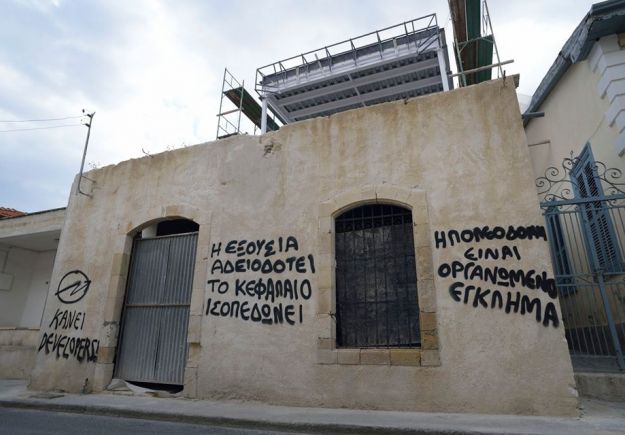 ΚΑΝΕΙ
DEVELOPERS!
Η ΕΞΟΥΣΙΑ
ΑΔΕΙΟΔΟΤΕΙ
ΤΟ ΚΕΦΑΛΑΙΟ
ΙΣΟΠΕΔΩΝΕΙ
Η ΠΟΛΕΟΔΟΜΙΑ
ΕΙΝΑΙ
ΟΡΓΑΝΩΜΕΝΟ
ΕΓΚΛΗΜΑ